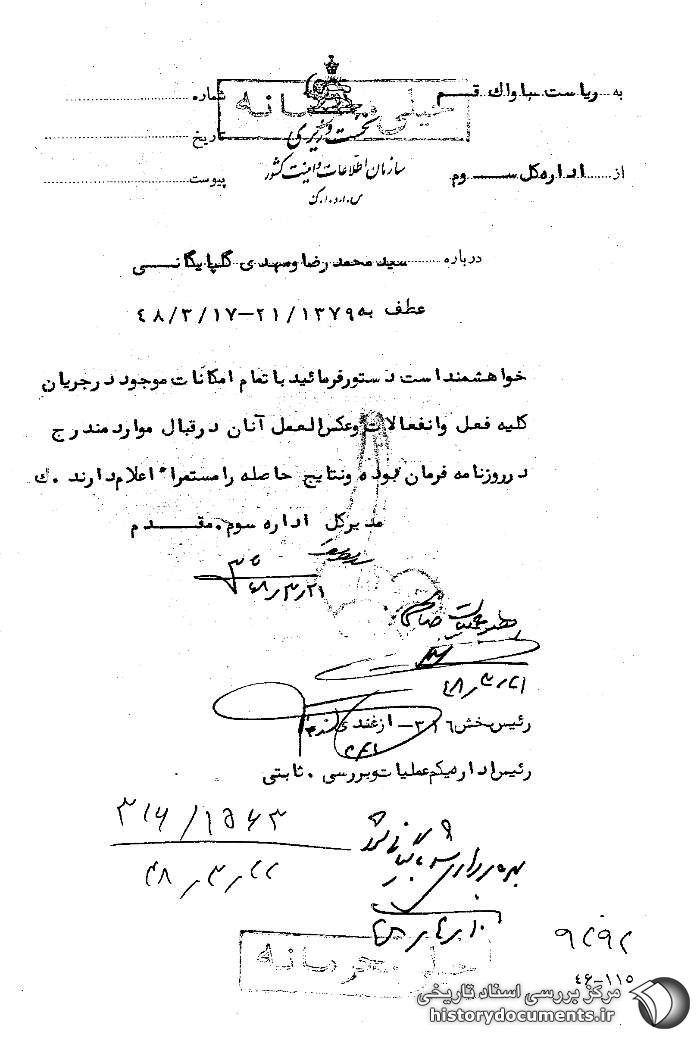 به ریاست ساواک قم
شماره
خیلی محرمانه
نخست وزیری
تاریخ
از اداره کل سوم
سازمان اطلاعات و امنیت کشور
پیوست
س.ا.و.ا.ک
درباره سید محمد رضا و مهدی گلپایگانی
عطف به ۲۱/۱۳۷۹-۴۸/۳/۱۷
خواهشمند است دستور فرمائید با تمام امکانات موجود در جریان
کلیه فعل و انفعالات و عکس العمل آنان در قبال موارد مندرج
در روزنامه فرمان بوده و نتایج حاصله را مستمراً اعلام دارند . ک
مدیر کل اداره سوم . مقدم
۴۸/۳/۲۱
۴۸/۳/۲۱
رئیس بخش ۳۱۶- ازغندی
رئیس اداره یکم عملیات و بررسی . ثابتی
۳۱۶/۱۵۶۳
۴۸/۳/۲۲
خیلی محرمانه
۴۶-۱۱۵
مرکز بررسی اسناد تاریخی
historydocuments.ir